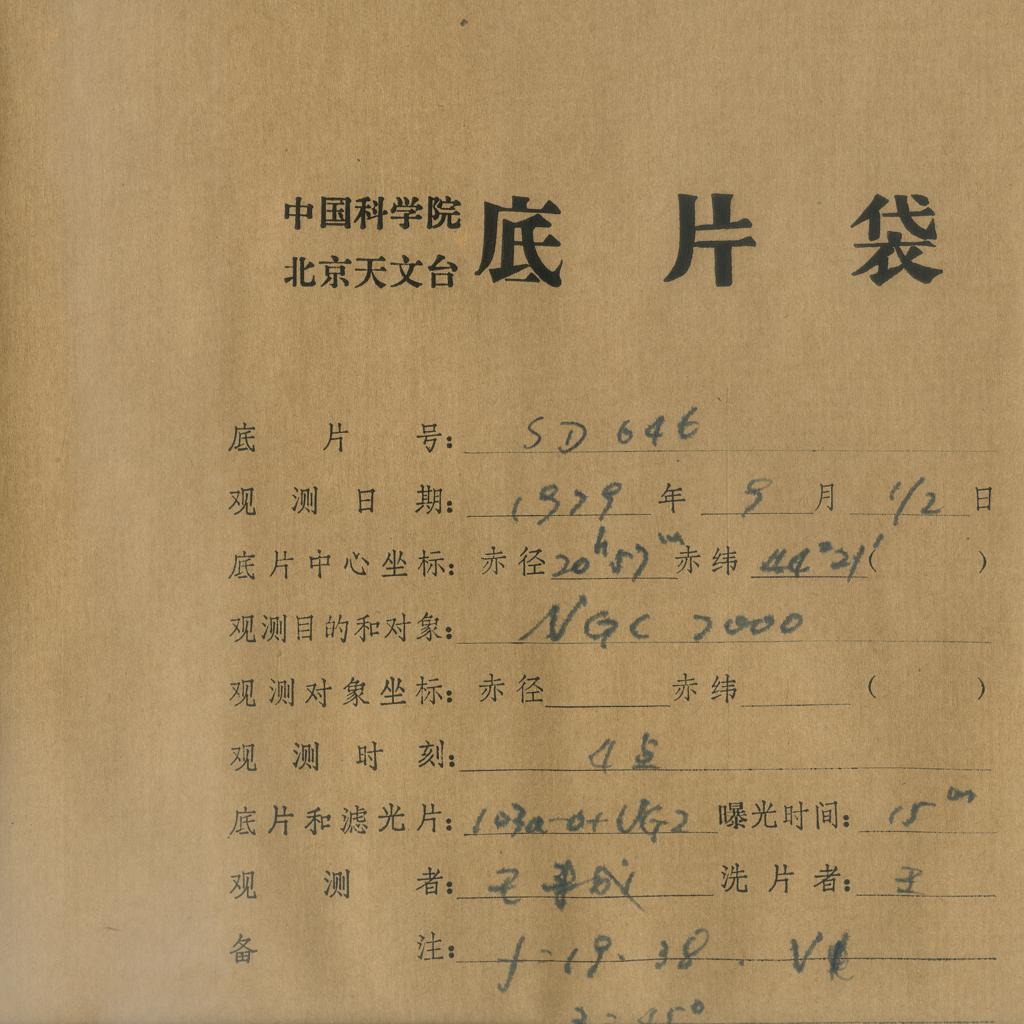 中国科学院
北京天文台
底片袋
底片号: SD 646
观测日期: 1979年 9月 1/2日
底片中心坐标: 赤径20ʰ57ᵐ赤纬44°21′( )
观测目的和对象: NGC 7000
观测对象坐标: 赤径 赤纬 ( )
观测时刻: 4点
底片和滤光片: 103a-O+UG2 曝光时间: 15ᵐ
观测者: 王 洗片者: 王
备注: f=19.38.
z=45°